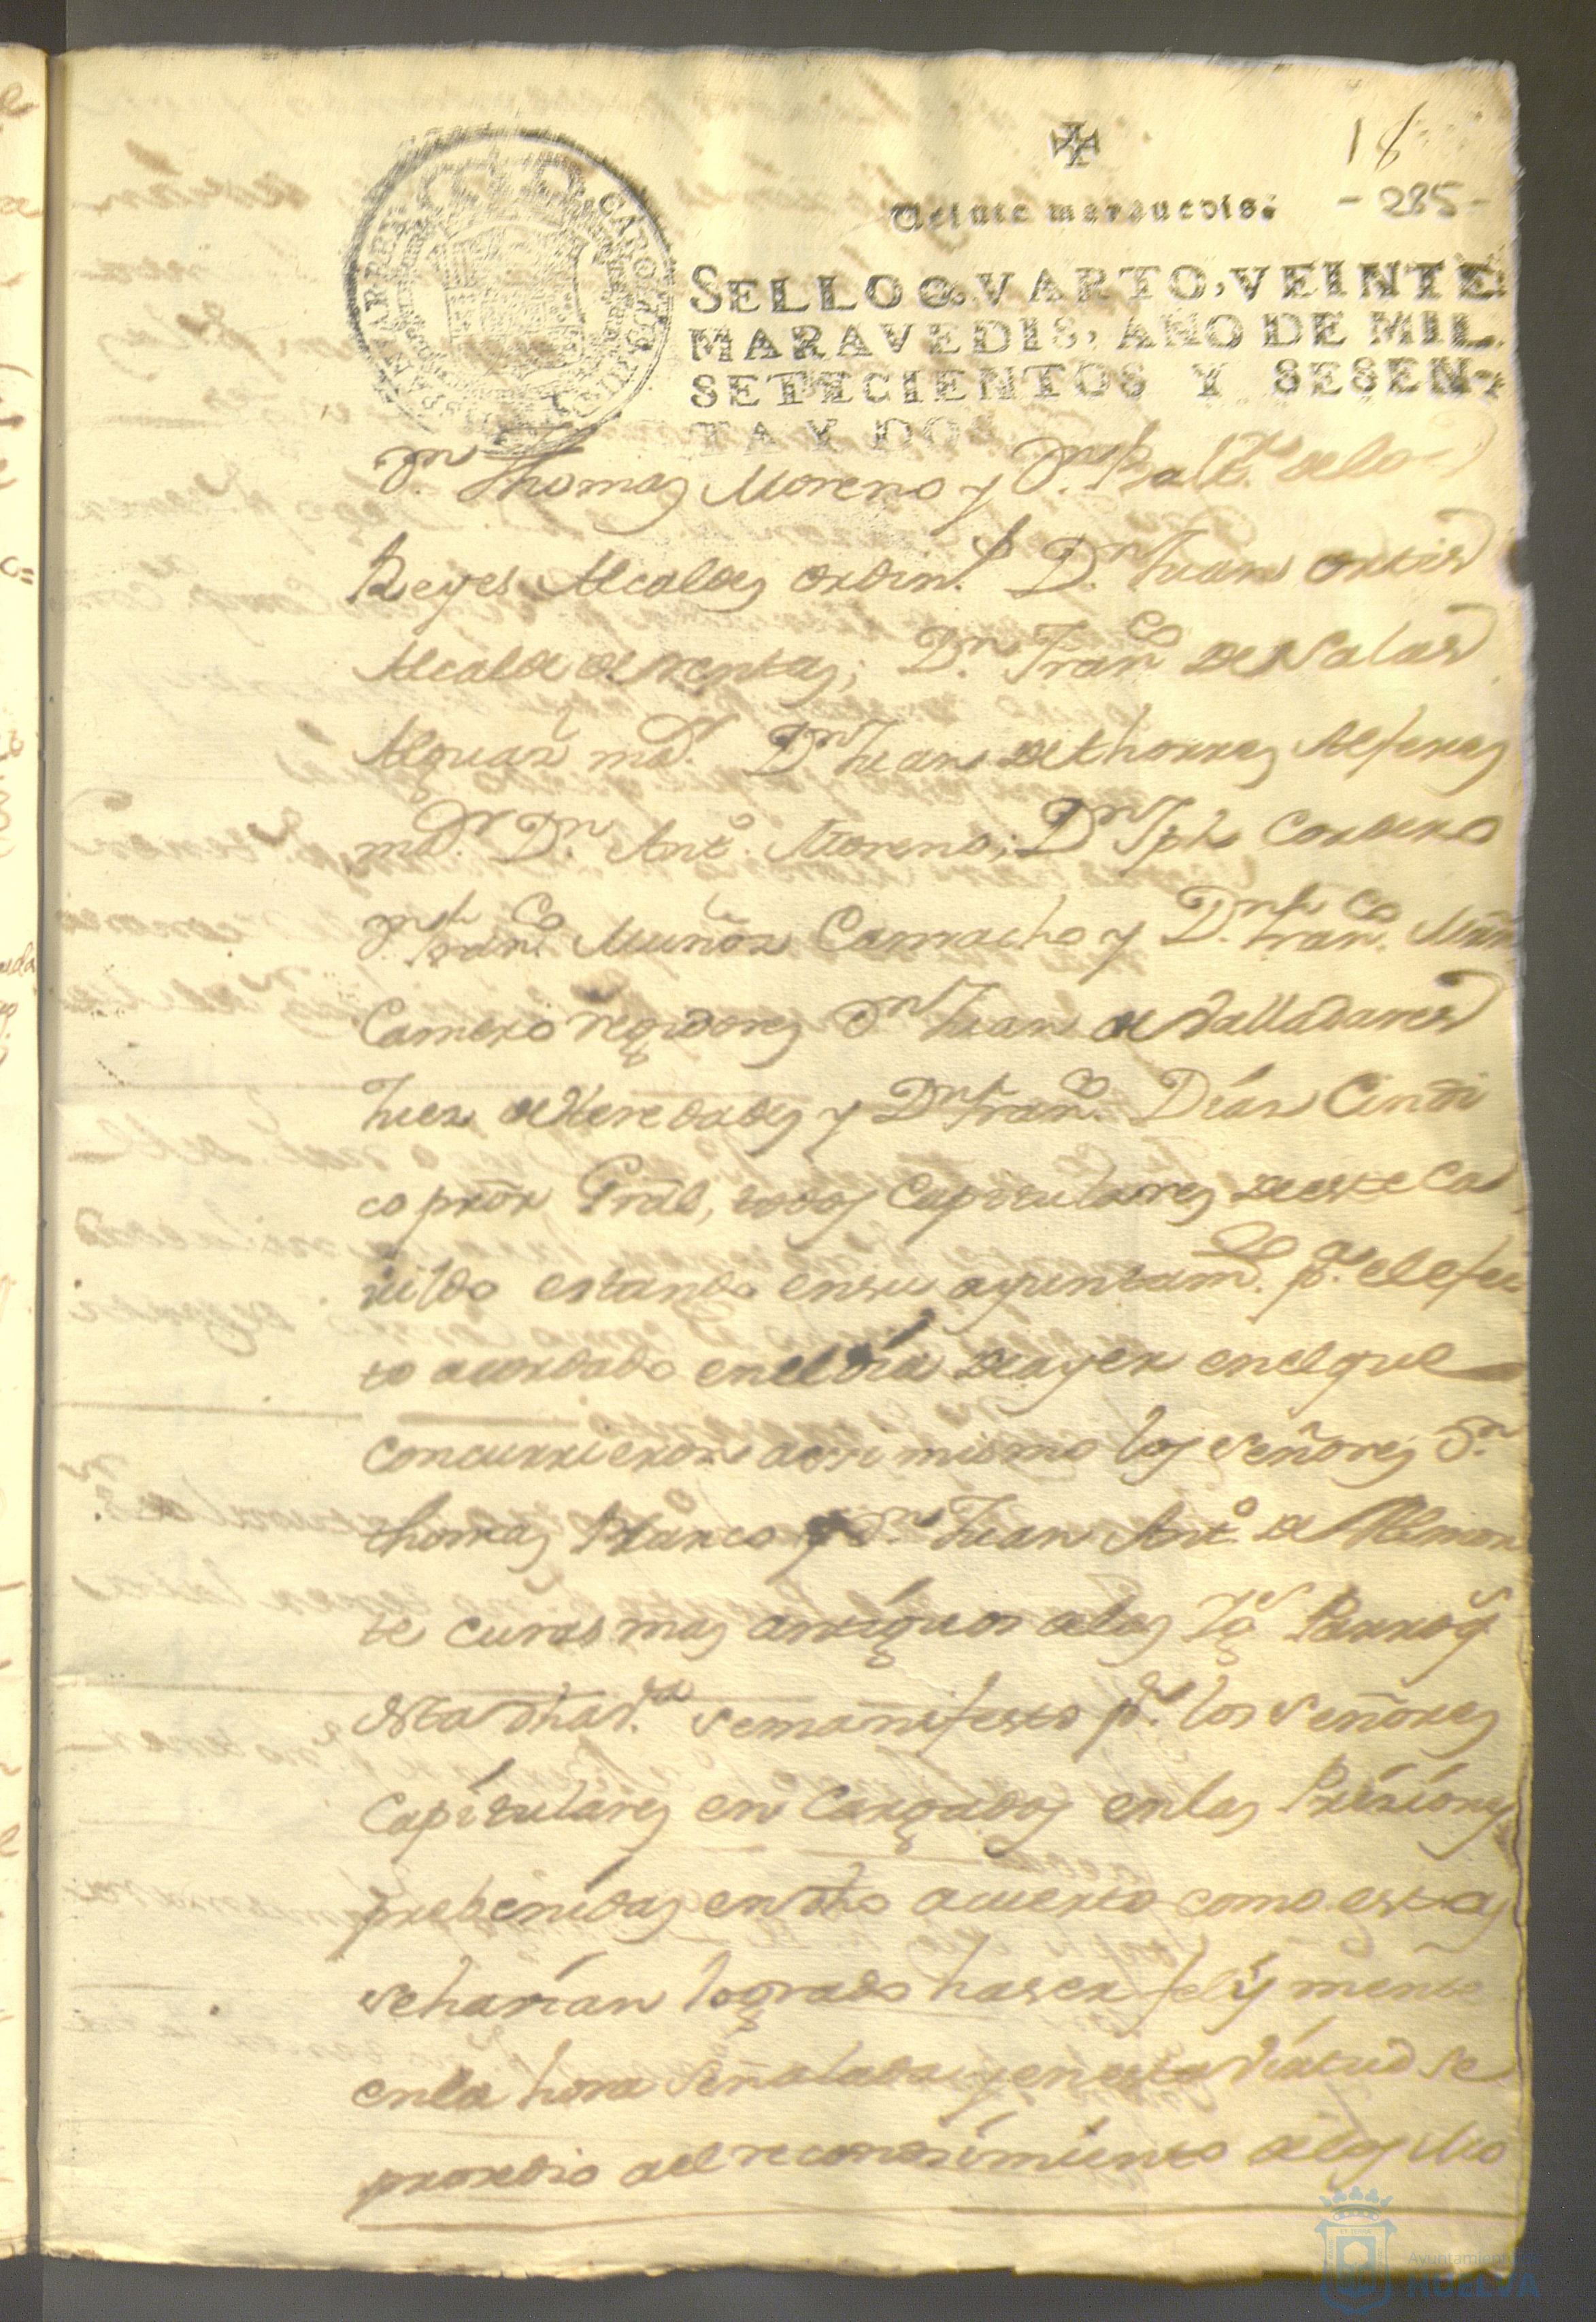 18
Veinte maravedis.
- 285 -
SELLO QVARTO, VEINTE
MARAVEDIS, AÑO DE MIL
SETECIENTOS Y SESEN-
TA Y DOS
Dn. Thomas Moreno y Dn. Baltr. de los
Reyes Alcaldes ordins. Dn. Juan Ortis
Alcalde de rentas; Dn. Franco. de Salas
Alguaz mor. Dn. Juan de thorres Alferes
mor. Dn. Anto. Moreno; Dn. Jph Cordero
Dn. Franco. Muñoz Camacho y Dn. Franco. Muñ
Camero regidores Dn. Juan de Valladares
Juez de Heredades y Dn. Franco. Dias Cindi
co pror Gral, todos Capitulares de este Ca
vildo estando en su ayuntamto. pa. el efec
to acordado en el dia de ayer en el que
concurrieron assi mismo los señores Dn.
thomas Blanco y Dn. Juan Anto. de Almon
te curas mas antiguos de las Igs. Parroqs.
desta dha va. se manifesto pr. los señores
Capitulares en Cargados en las Preziones
prebenidas en dho acuerdo como estas
se harian logrado haser felismente
en la hora señalada y en esta virtud se
prozedio al reconosimiento de los Mo
Ayuntamiento de
HUELVA